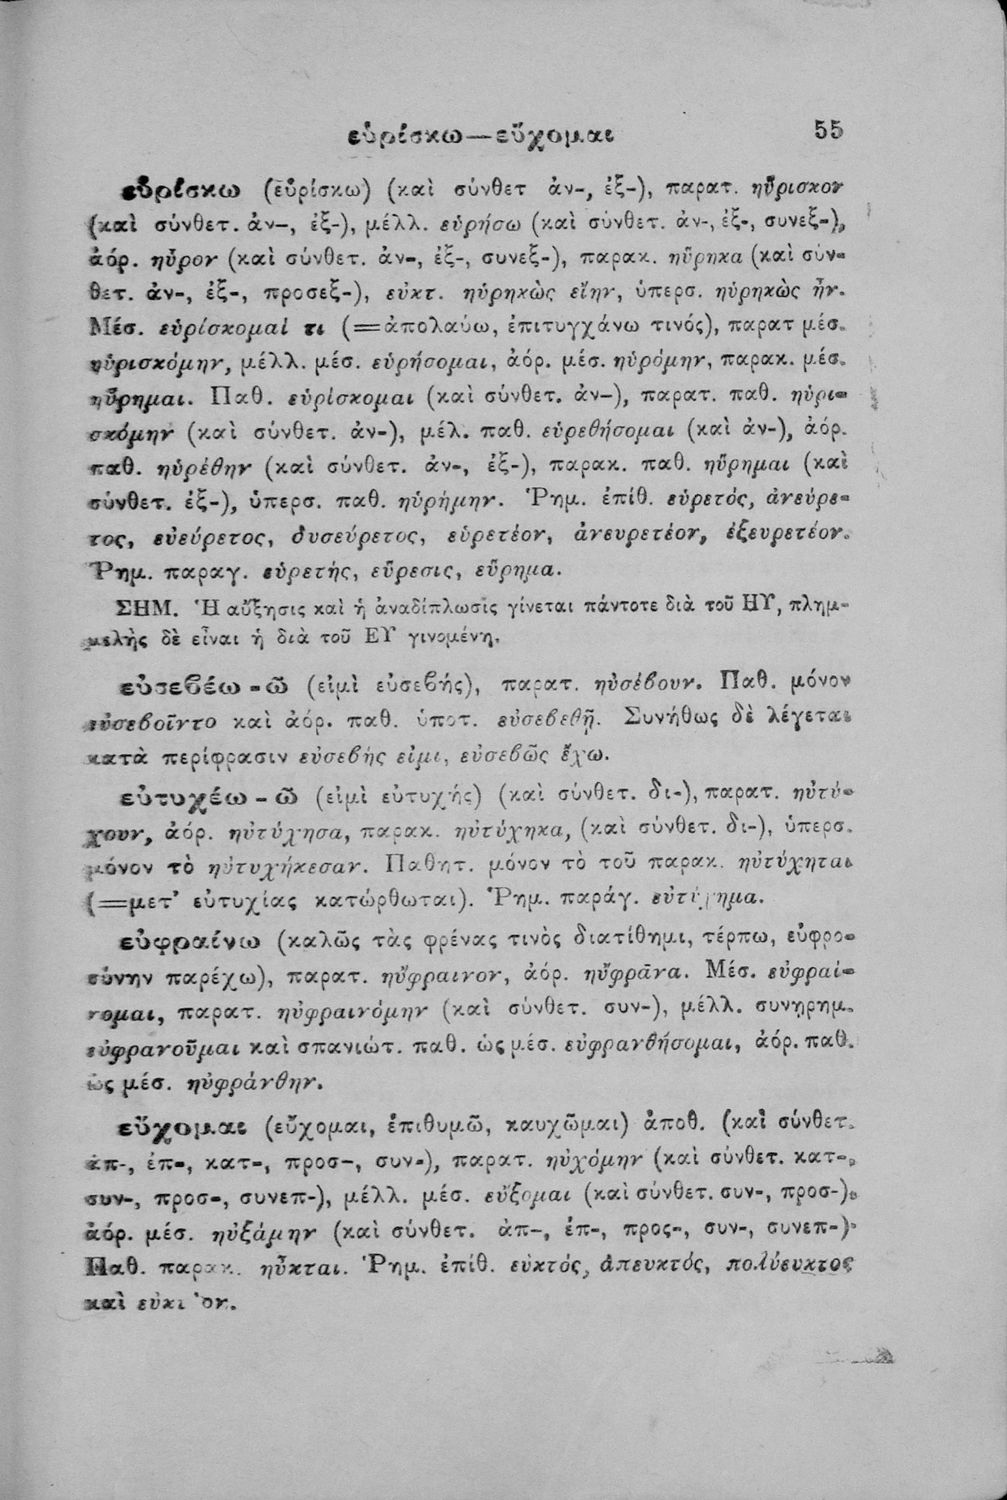 εὑρίσκω—εὔχομαι 55
εὑρίσκω (εὑρίσκω) (καὶ σύνθετ ἀν-, ἐξ-), παρατ. ηὕρισκον
(καὶ σύνθετ. ἀν-, ἐξ-), μέλλ. εὑρήσω (καὶ σύνθετ. ἀν-, ἐξ-, συνεξ-),
ἀόρ. ηὗρον (καὶ σύνθετ. ἀν-, ἐξ-, συνεξ-), παρακ. ηὕρηκα (καὶ σύν-
θετ. ἀν-, ἐξ-, προσεξ-), εὐκτ. ηὑρηκὼς εἴην, ὑπερσ. ηὑρηκὼς ἦν.
Μέσ. εὑρίσκομαί τι (=ἀπολαύω, ἐπιτυγχάνω τινός), παρατ μέσ.
ηὑρισκόμην, μέλλ. μέσ. εὑρήσομαι, ἀόρ. μέσ. ηὑρόμην, παρακ. μέσ.
ηὕρημαι. Παθ. εὑρίσκομαι (καὶ σύνθετ. ἀν-), παρατ. παθ. ηὑρι-
σκόμην (καὶ σύνθετ. ἀν-), μέλ. παθ. εὑρεθήσομαι (καὶ ἀν-), ἀόρ.
παθ. ηὑρέθην (καὶ σύνθετ. ἀν-, ἐξ-), παρακ. παθ. ηὕρημαι (καὶ
σύνθετ. ἐξ-), ὑπερσ. παθ. ηὑρήμην. Ῥημ. ἐπίθ. εὑρετός, ἀνεύρε-
τος, εὐεύρετος, δυσεύρετος, εὑρετέον, ἀνευρετέον, ἐξευρετέον.
Ῥημ. παραγ. εὑρετής, εὕρεσις, εὕρημα.
ΣΗΜ. Ἡ αὔξησις καὶ ἡ ἀναδίπλωσις γίνεται πάντοτε διὰ τοῦ ΗΥ, πλημ-
μελὴς δὲ εἶναι ἡ διὰ τοῦ ΕΥ γινομένη.
εὐσεβέω-ῶ (εἰμὶ εὐσεβής), παρατ. ηὐσέβουν. Παθ. μόνον
εὐσεβοῖντο καὶ ἀόρ. παθ. ὑποτ. εὐσεβεθῇ. Συνήθως δὲ λέγεται
κατὰ περίφρασιν εὐσεβής εἰμι, εὐσεβῶς ἔχω.
εὐτυχέω-ῶ (εἰμὶ εὐτυχής) (καὶ σύνθετ. δι-), παρατ. ηὐτύ-
χουν, ἀόρ. ηὐτύχησα, παρακ. ηὐτύχηκα, (καὶ σύνθετ. δι-), ὑπερσ.
μόνον τὸ ηὐτυχήκεσαν. Παθητ. μόνον τὸ τοῦ παρακ. ηὐτύχηται
(=μετ' εὐτυχίας κατώρθωται). Ῥημ. παράγ. εὐτύχημα.
εὐφραίνω (καλῶς τὰς φρένας τινὸς διατίθημι, τέρπω, εὐφρο-
σύνην παρέχω), παρατ. ηὔφραινον, ἀόρ. ηὔφρᾱνα. Μέσ. εὐφραί-
νομαι, παρατ. ηὐφραινόμην (καὶ σύνθετ. συν-), μέλλ. συνῃρημ.
εὐφρανοῦμαι καὶ σπανιώτ. παθ. ὡς μέσ. εὐφρανθήσομαι, ἀόρ. παθ.
ὡς μέσ. ηὐφράνθην.
εὔχομαι (εὔχομαι, ἐπιθυμῶ, καυχῶμαι) ἀποθ. (καὶ σύνθετ.
ἀπ-, ἐπ-, κατ-, προσ-, συν-), παρατ. ηὐχόμην (καὶ σύνθετ. κατ-,
συν-, προσ-, συνεπ-), μέλλ. μέσ. εὔξομαι (καὶ σύνθετ. συν-, προσ-),
ἀόρ. μέσ. ηὐξάμην (καὶ σύνθετ. ἀπ-, ἐπ-, προς-, συν-, συνεπ-)·
Παθ. παρακ. ηὖκται. Ῥημ. ἐπίθ. εὐκτός, ἀπευκτός, πολύευκτος
καὶ